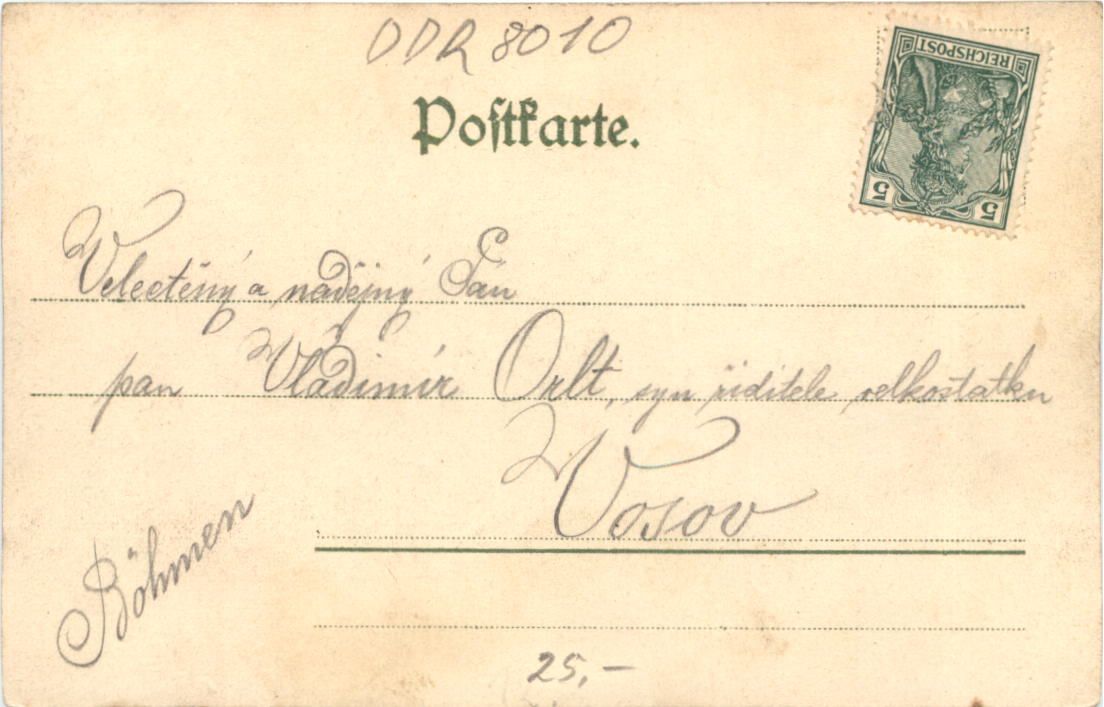 DDR 8010
REICHSPOST
5 5
Postkarte.
Velectěný a nadějný Pán
pan Vladimír Orlt, syn řiditele velkostatku
Vosov
Böhmen
25,-